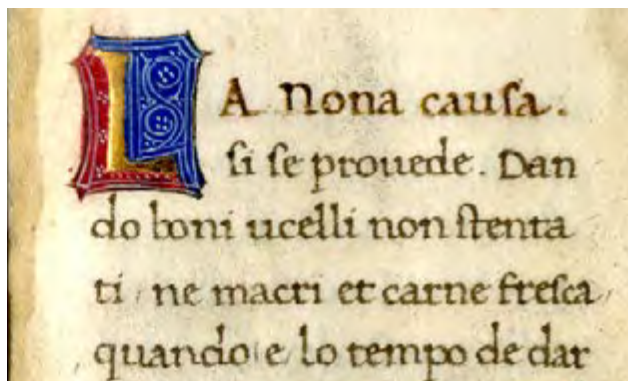 LA Nona cauſa.
ſi ſe prouede. Dan
do boni ucelli non ſtenta
ti, ne macri et carne freſca,
quando e lo tempo de dar